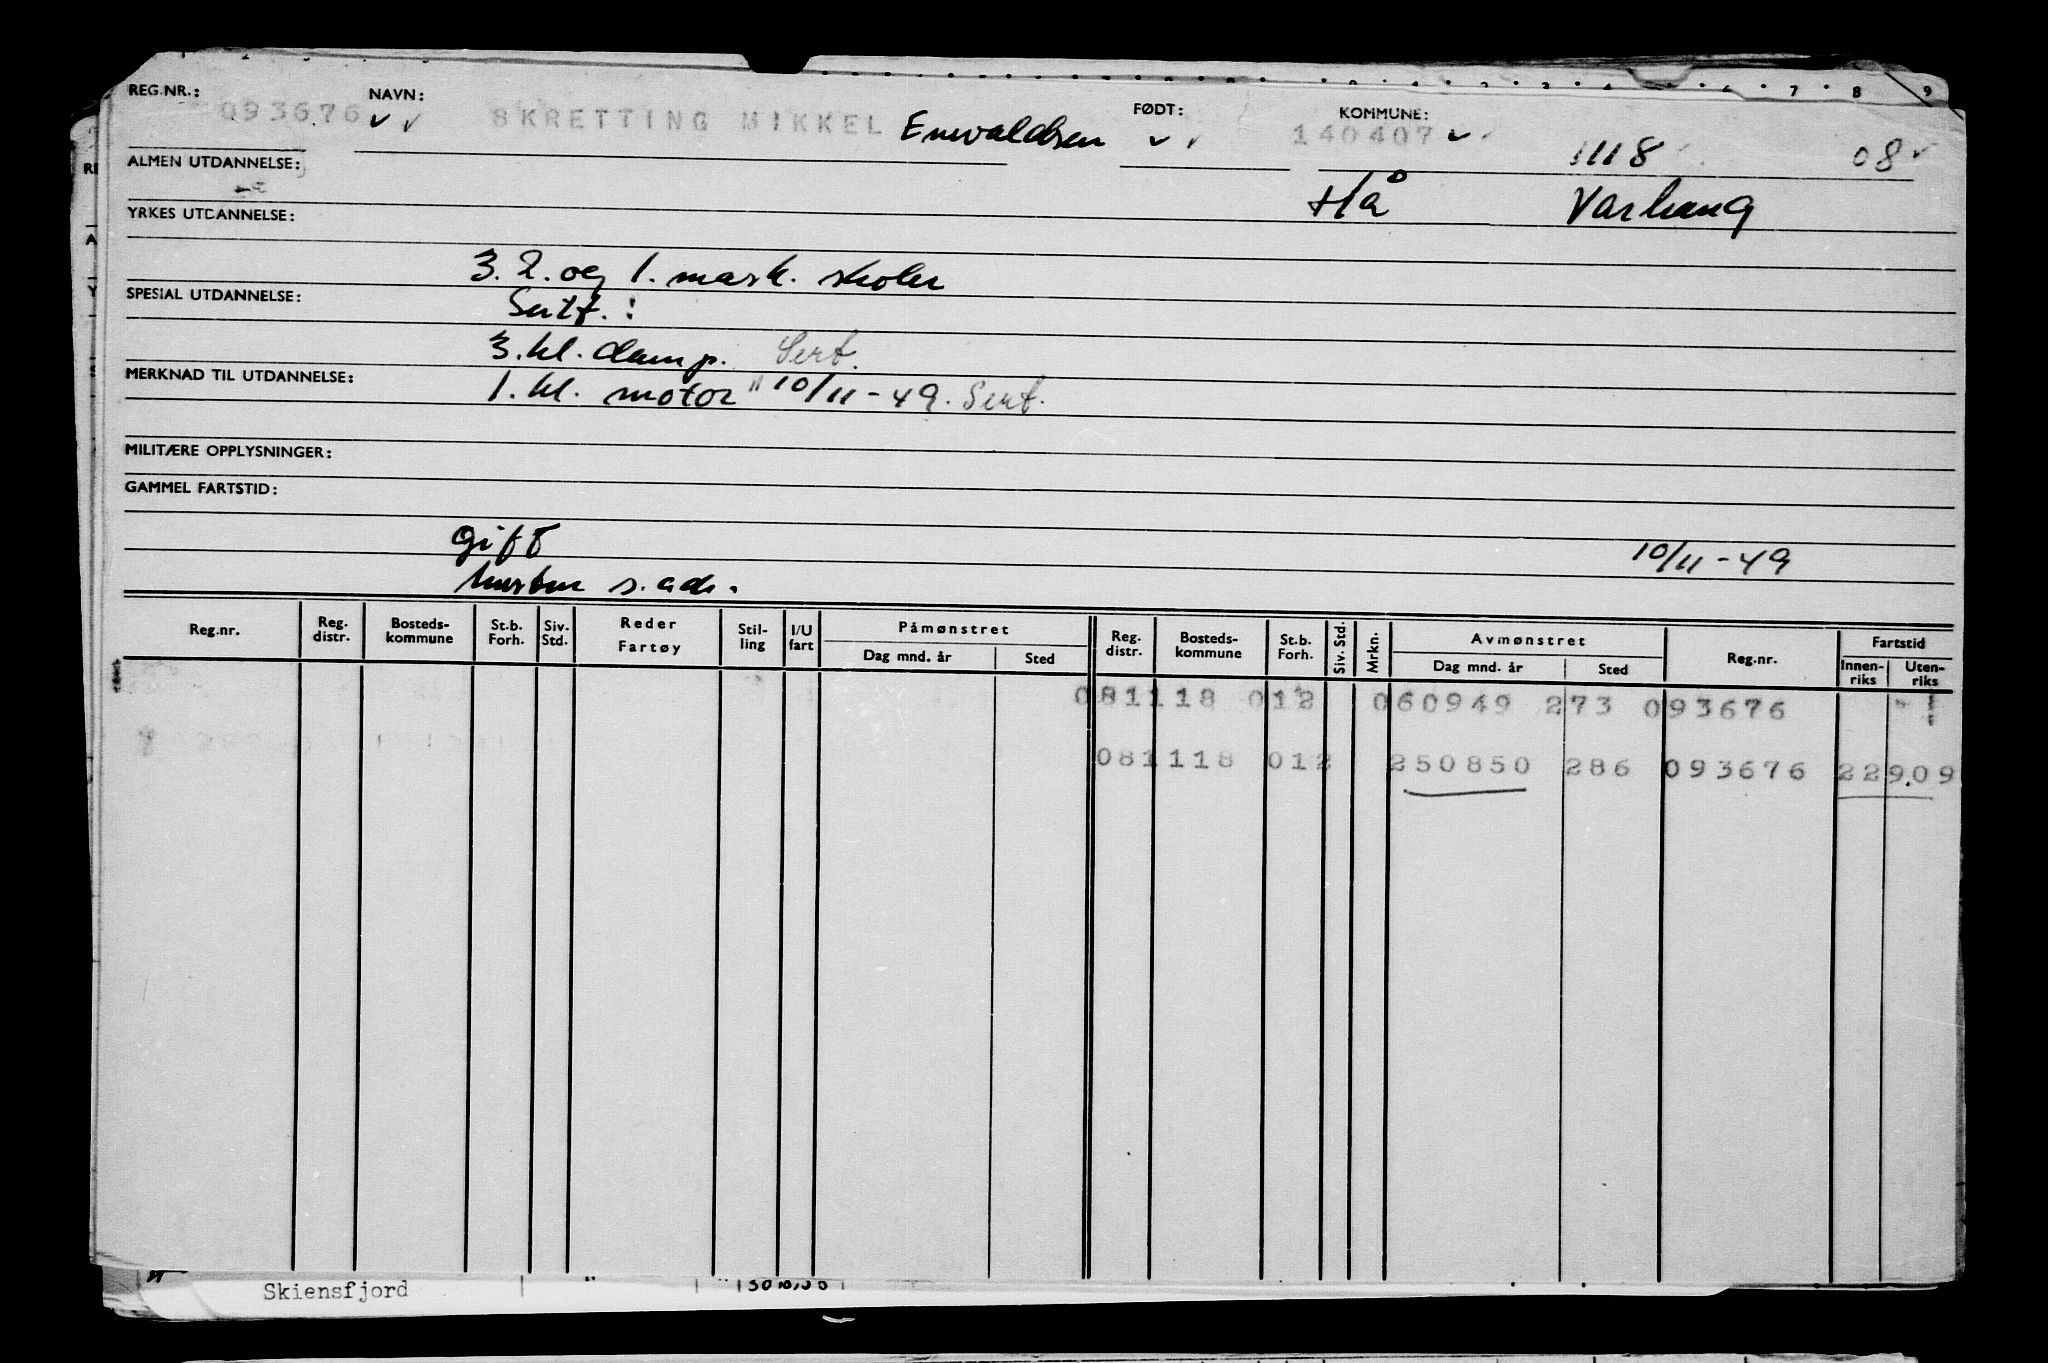 REG.NR.: NAVN: FØDT: KOMMUNE:
093676 SKRETTING MIKKEL Enevaldsen 140407 1118 08
ALMEN UTDANNELSE: Hå Varhaug
YRKES UTDANNELSE:
3. 2. og 1. mask. skoler
SPESIAL UTDANNELSE: Sertf. :
3. kl. damp. Sert.
MERKNAD TIL UTDANNELSE: 1. kl. motor " 10/11-49. Sert.
MILITÆRE OPPLYSNINGER:
GAMMEL FARTSTID:
gift 10/11-49
hustru s. adr.
Reg.nr. Reg. distr. Bosteds-kommune St.b. Forh. Siv. Std. Reder Fartøy Stil-ling I/U fart Påmønstret Dag mnd. år Sted Reg. distr. Bosteds-kommune St.b. Forh. Siv. Std. Mrkn. Avmønstret Dag mnd. år Sted Reg.nr. Fartstid Innen-riks Uten-riks
081118 012 060949 273 093676
081118 012 250850 286 093676 229.09
Skiensfjord "